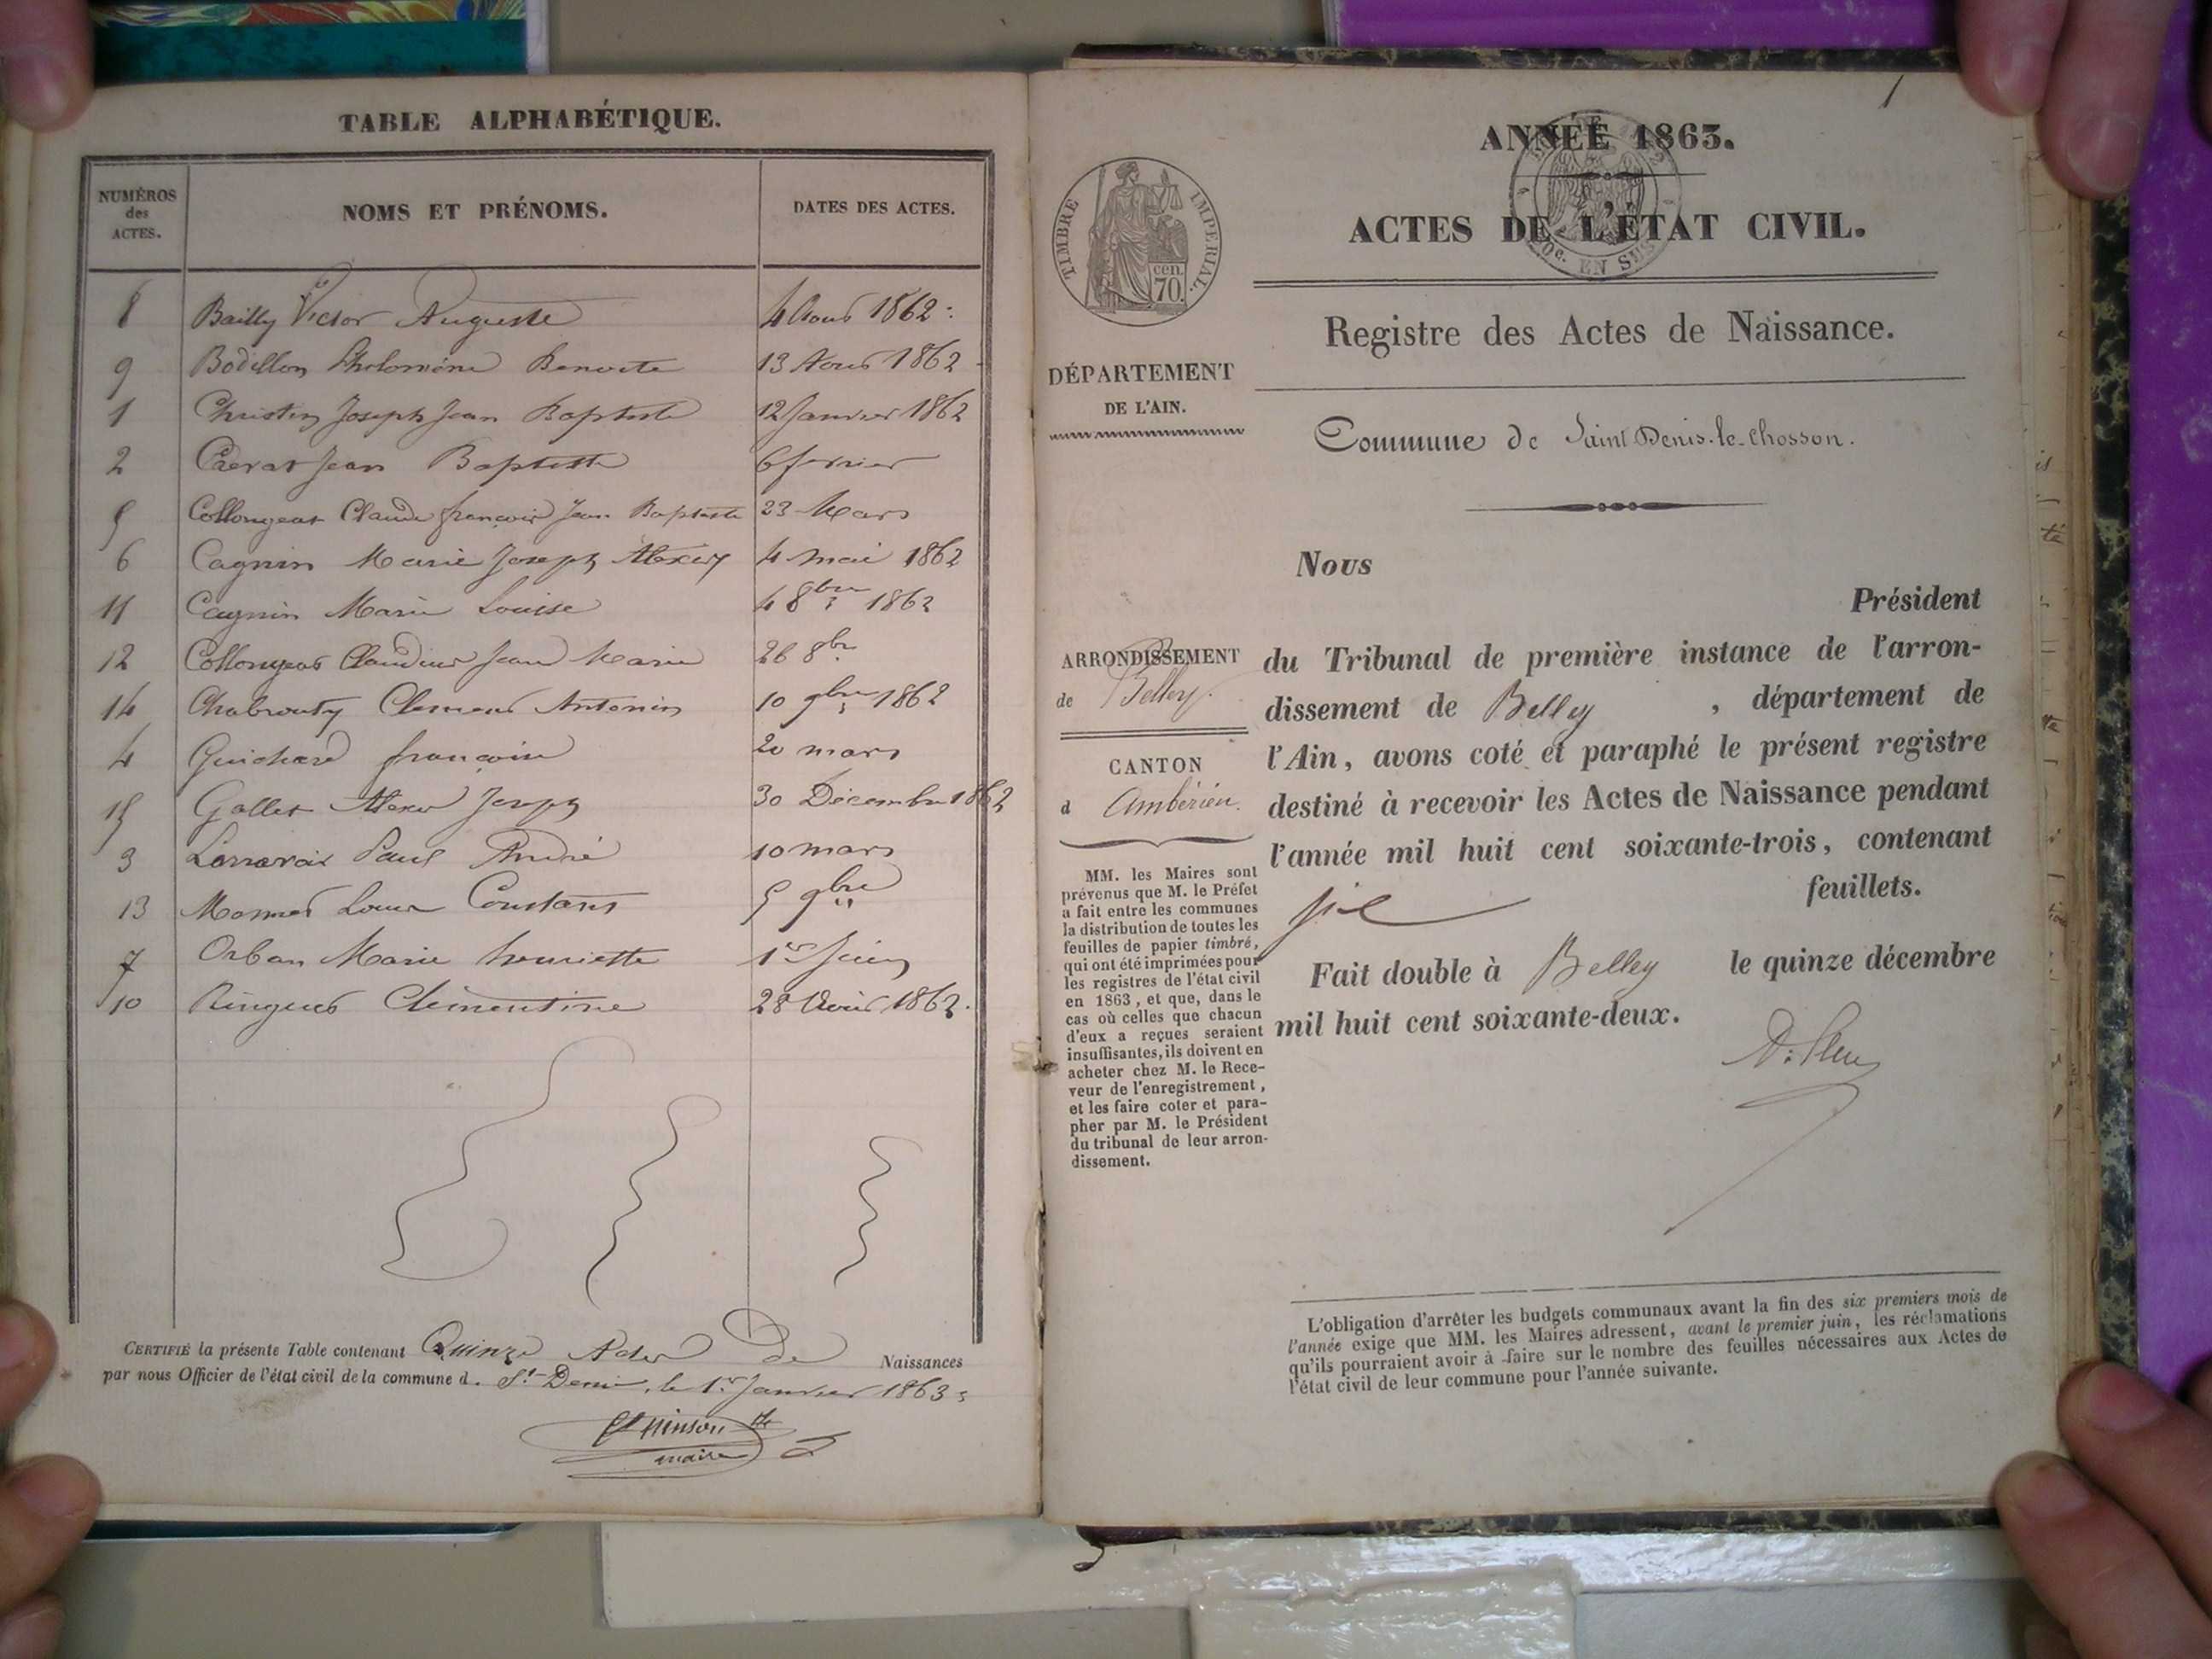 TABLE ALPHABÉTIQUE.
NUMÉROS des ACTES.
NOMS ET PRÉNOMS.
DATES DES ACTES.
8 Bailly Victor Auguste 4 Aout 1862
9 Bodillon Philomène Benoite 13 Aout 1862
1 Christin Joseph Jean Baptiste 12 Janvier 1862
2 Jean Baptiste 6 fevrier
5 Collongeat Claude françois Jean Baptiste 23 Mars
6 Cagnin Marie Joseph Alexis 4 mai 1862
11 Cagnin Marie Louise 4 8bre 1862
12 Collongeat Claudius Jean Marie 26 8bre
14 Chabrouty Clement Antonin 10 9bre 1862
4 Guichard françoise 20 mars
15 Gallet Joseph 30 Décembre 1862
3 Paul André 10 mars
13 Louis Constant 5 9bre
7 Orban Marie henriette 1er Juin
10 Ringuet Clémentine 28 Aout 1862.
CERTIFIÉ la présente Table contenant Quinze Actes De Naissances
par nous Officier de l'état civil de la commune d. St Denis, le 1er Janvier 1863
maire
1
ANNÉE 1863.
ACTES DE L'ÉTAT CIVIL.
TIMBRE IMPERIAL.
cen. 70.
EN SUS
Registre des Actes de Naissance.
DÉPARTEMENT
DE L'AIN.
Commune de Saint Denis-le-Chosson.
Nous
Président
ARRONDISSEMENT
de Belley.
CANTON
d Ambérieu.
du Tribunal de première instance de l'arron-
dissement de Belley , département de
l'Ain, avons coté et paraphé le présent registre
destiné à recevoir les Actes de Naissance pendant
l'année mil huit cent soixante-trois, contenant
six feuillets.
Fait double à Belley le quinze décembre
mil huit cent soixante-deux.
MM. les Maires sont
prévenus que M. le Préfet
a fait entre les communes
la distribution de toutes les
feuilles de papier timbré,
qui ont été imprimées pour
les registres de l'état civil
en 1863, et que, dans le
cas où celles que chacun
d'eux a reçues seraient
insuffisantes, ils doivent en
acheter chez M. le Rece-
veur de l'enregistrement,
et les faire coter et para-
pher par M. le Président
du tribunal de leur arron-
dissement.
L'obligation d'arrêter les budgets communaux avant la fin des six premiers mois de
l'année exige que MM. les Maires adressent, avant le premier juin, les réclamations
qu'ils pourraient avoir à faire sur le nombre des feuilles nécessaires aux Actes de
l'état civil de leur commune pour l'année suivante.